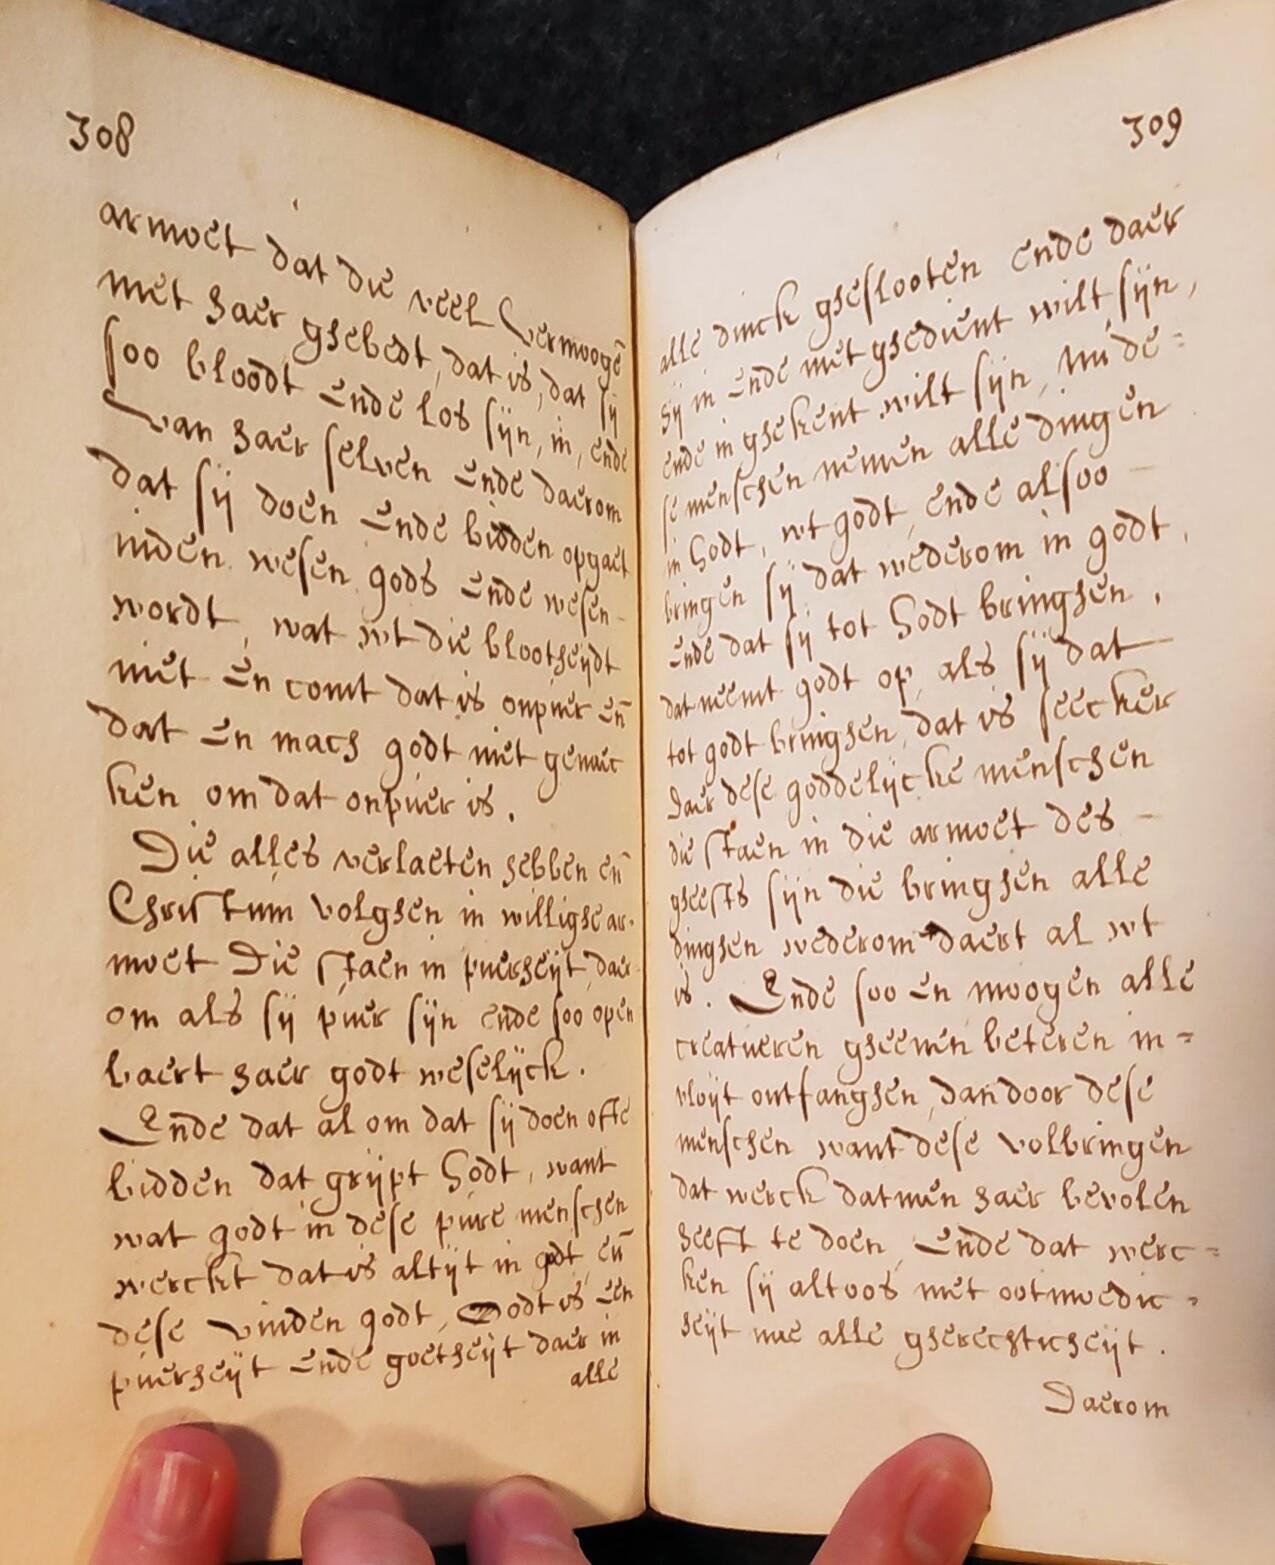 308
armoet dat die veel vermoogē
met haer ghebedt, dat is, dat sij
soo bloodt ende los sijn, in, ende
van haer selven ende daerom
dat sij doen ende bidden opgaet
inden wesen gods ende wesen
wordt, wat wt die blootheijdt
niet en comt dat is onpuer eñ
dat en mach godt niet
ken om dat onpuer is.
Die alles verlaeten hebben eñ
Christum volghen in willighe ar-
moet Die staen in puerheijt, daer
om als sij puer sijn ende soo open
baert haer godt weselijck.
Ende dat al om dat sij doen ofte
bidden dat grijpt Godt, want
wat godt in dese puere menschen
werckt dat is altijt in godt, eñ
dese vinden godt, Godt is een
puerheijt ende goetheijt daer in
alle
309
alle dinck gheslooten ende daer
hij in ende met ghedient wilt sijn,
ende in ghekent wilt sijn, Nu de=
se menschen nemen alle dingen
in Godt, wt godt, ende alsoo
bringen sij dat wederom in godt,
Ende dat sij tot Godt bringhen,
dat neemt godt op, als sij dat
tot godt bringhen, dat is seecker
Daer dese goddelijcke menschen
die staen in die armoet des
gheests sijn die bringhen alle
dinghen wederom daert al wt
is. Ende soo en moogen alle
creatueren gheenen beteren in=
vloijt ontfanghen, dan door dese
menschen want dese volbringen
dat werck datmen haer bevolen
heeft te doen, Ende dat werc=
ken sij altoos met ootmoedic=
heijt nae alle gherechticheijt.
Daerom